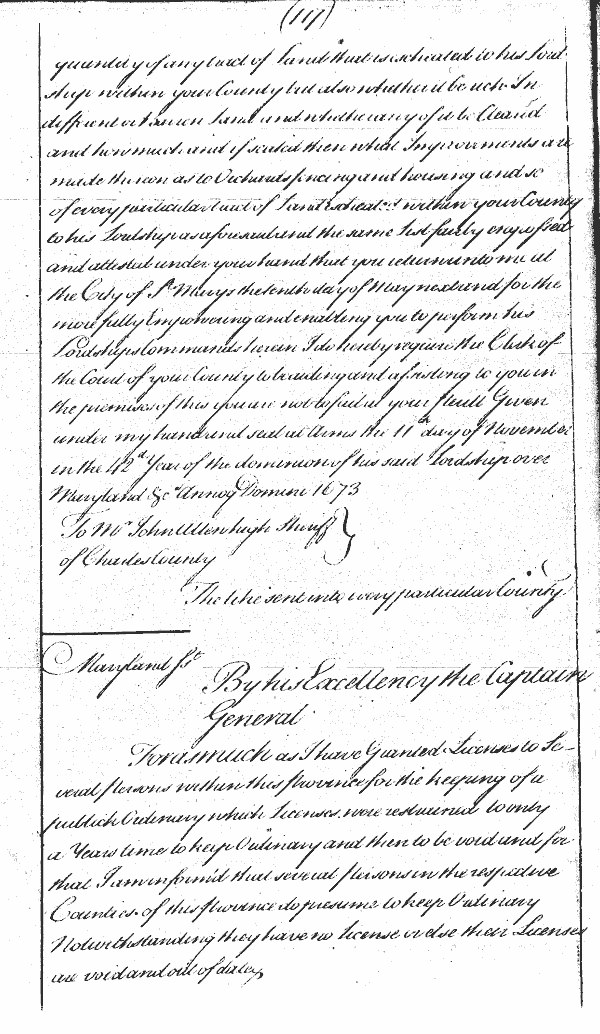 (117)
quantity of any tract of Land that is escheated to his Lord
ship within your County but also whether it be rich In
different or barren Land and whether any of it be Clear'd
and how much and if seated then what Improvements are
made thereon as to Orchards fencing and housing and so
of every particular tract of Land escheated within your County
to his Lordship as aforesaid and the same List fairly engrossed
and attested under your hand that you return unto me at
the City of St Marys the tenth day of May next and for the
more fully Empowering and enabling you to perform his
Lordships Commands herein I do hereby require the Clerk of
the Court of your County to be aiding and assisting to you in
the premises of this you are not to fail at your Perill Given
under my hand and seal at Arms the 11th day of November
in the 42d Year of the dominion of his said Lordship over
Maryland &c Annoq Domini 1673
To Mr John Allen high Sheriff
of Charles County
The like sent into every particular County
Maryland ss
By his Excellency the Captain
General
Forasmuch as I have Granted Licenses to Se-
veral persons within this province for the keeping of a
publick Ordinary which Licenses were restrained to only
a Years time to keep Ordinary and then to be void and for
that I am inform'd that several persons in the respective
Counties of this province do presume to keep Ordinary
Notwithstanding they have no License or else their Licenses
are void and out of date,